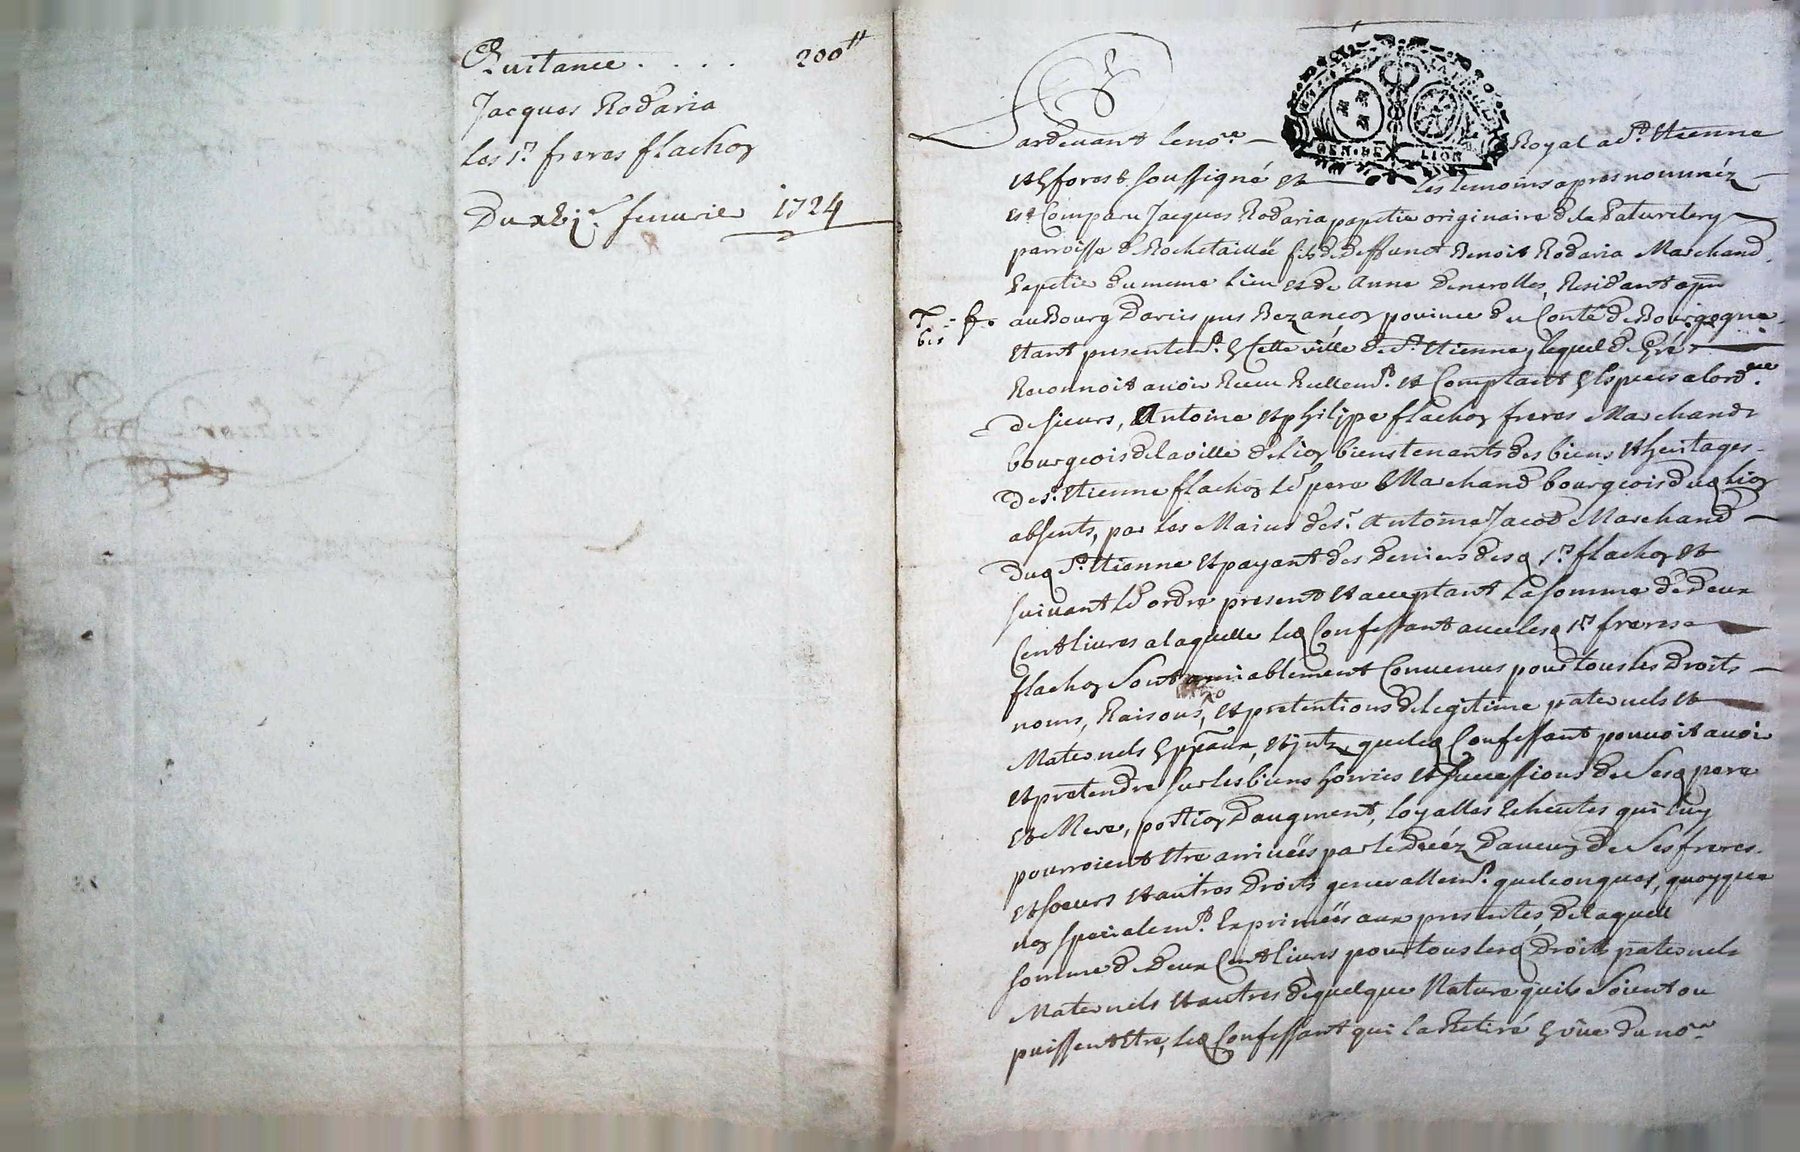 Quitance . . . . 200ᵗᵗ
Jacques Rodaria
Les sʳˢ freres flachoz
Du xbjᵉ. feuurier 1724
Pardeuant le noʳᵉ Royal a Sᵗ. Etienne
GEN. DE LION
et forest soussigné et les temoins apres nomméz
est Comparu Jacques Rodaria papetier originaire de la
parroisse de Rochetaillée fils de deffunct Benoist Rodaria Marchand
Papetier du mesme lieu et de Anne Deuerolles, Residant
au Bourg Darcis pres Bezancoz prouince du Conté de Bourgogne
Etant presentemᵗ. en Cette ville de Sᵗ. Etienne, lequel de gré
Reconnoit auoir Receu Reellemᵗ. et Comptant en Especes
de sieurs, Antoine et philippe flachoz freres Marchands
bourgeois de la ville de lioz bienstenants des biens et heritages
de sʳ. Etienne flachoz le pere Marchand bourgeois dud lioz
absents, par les Mains de sʳ. Antoine Jacod Marchand
dud Sᵗ. Etienne et payant des deniers desd sʳˢ flachoz et
suiuant le ordre present et acceptant La somme de Deux
Cent liures a laquelle led Confessant auec lesd sʳˢ freres
flachoz Sont amiablement Conuenus pour tous les Droits
noms, Raisons, et pretentions de legitime paternels et
Maternels que led Confessant pouuoit auoir
et pretendre sur les biens hoiries et successions de Sesd pere
et Mere, portioz Daugment, loyalles Echeutes qui luy
pourroient Etre arriuéés par le Decéz Daucuz de Ses freres
et soeurs et autres Droits generallemᵗ. quelconques, quoyque
noz specialemᵗ. Exprimeés aux presentes, de laquelle
somme de Deux Cent liures pour tous lesd Droits paternels
Maternels et autres de quelque Nature quils Soient ou
puissent Etre, led Confessant qui la Retiré en vüe du noʳᵉ